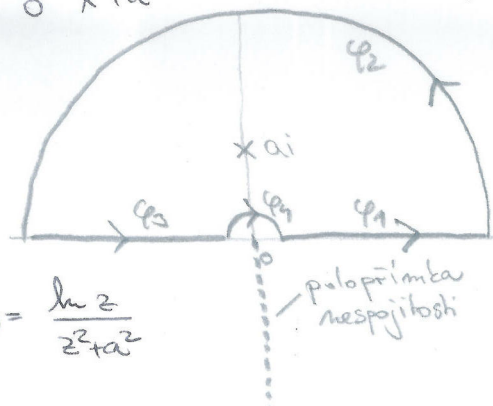 φ2
× ai
φ3
φ4
φ1
0
= ln z / z²+a²
polopřímka
nespojitosti